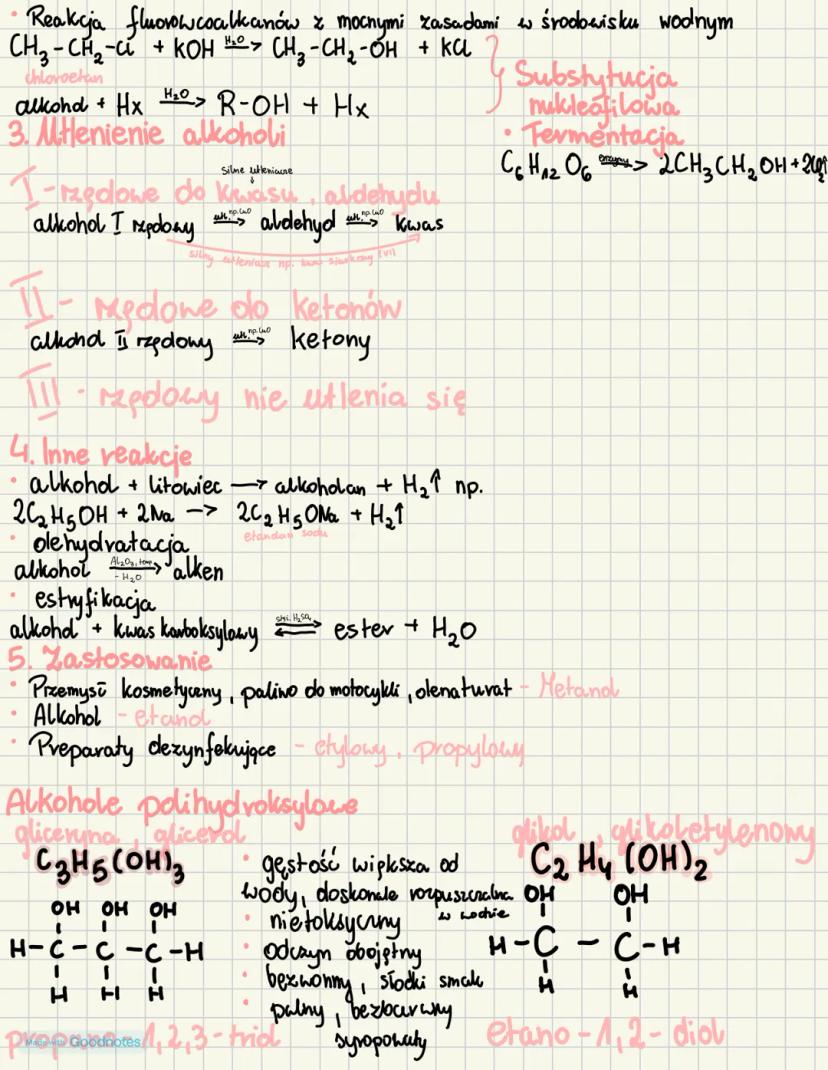 • Reakcja fluorowcoalkanów z mocnymi zasadami w środowisku wodnym
CH₃-CH₂-Cl + KOH H₂O→ CH₃-CH₂-OH + KCl
chloroetan
alkohol + Hx H₂O→ R-OH + Hx
Substytucja
nukleofilowa
• Fermentacja
C₆H₁₂O₆ enzymy→ 2CH₃CH₂OH + 2CO₂↑
3. Utlenienie alkoholi
silne utlenianie
I-rzędowe do kwasu, aldehydu
alkohol I rzędowy utl. np. CuO→ aldehyd utl. np. CuO→ kwas
silny utleniacz np. kwas siarkowy (VI)
II - rzędowe do ketonów
alkohol II rzędowy utl. np. CuO→ ketony
III - rzędowy nie utlenia się
4. Inne reakcje
• alkohol + litowiec → alkoholan + H₂↑ np.
2C₂H₅OH + 2Na → 2C₂H₅ONa + H₂↑
etanolan sodu
• dehydratacja
alkohol Al₂O₃, temp. -H₂O→ alken
• estryfikacja
alkohol + kwas karboksylowy stęż. H₂SO₄ ⇌ ester + H₂O
5. Zastosowanie
• Przemysł kosmetyczny, paliwo do motocykli, denaturat - Metanol
• Alkohol - etanol
• Preparaty dezynfekujące - etylowy, propylowy
Alkohole polihydroksylowe
gliceryna, glicerol
C₃H₅(OH)₃
OH OH OH
H-C-C-C-H
H H H
propano-1,2,3-triol
• gęstość większa od
wody, doskonale rozpuszczalna
w wodzie
• nietoksyczny
• odczyn obojętny
• bezwonny, słodki smak
• palny, bezbarwny
syropowaty
glikol, glikol etylenowy
C₂H₄(OH)₂
OH OH
H-C-C-H
H H
etano-1,2-diol
Made with Goodnotes